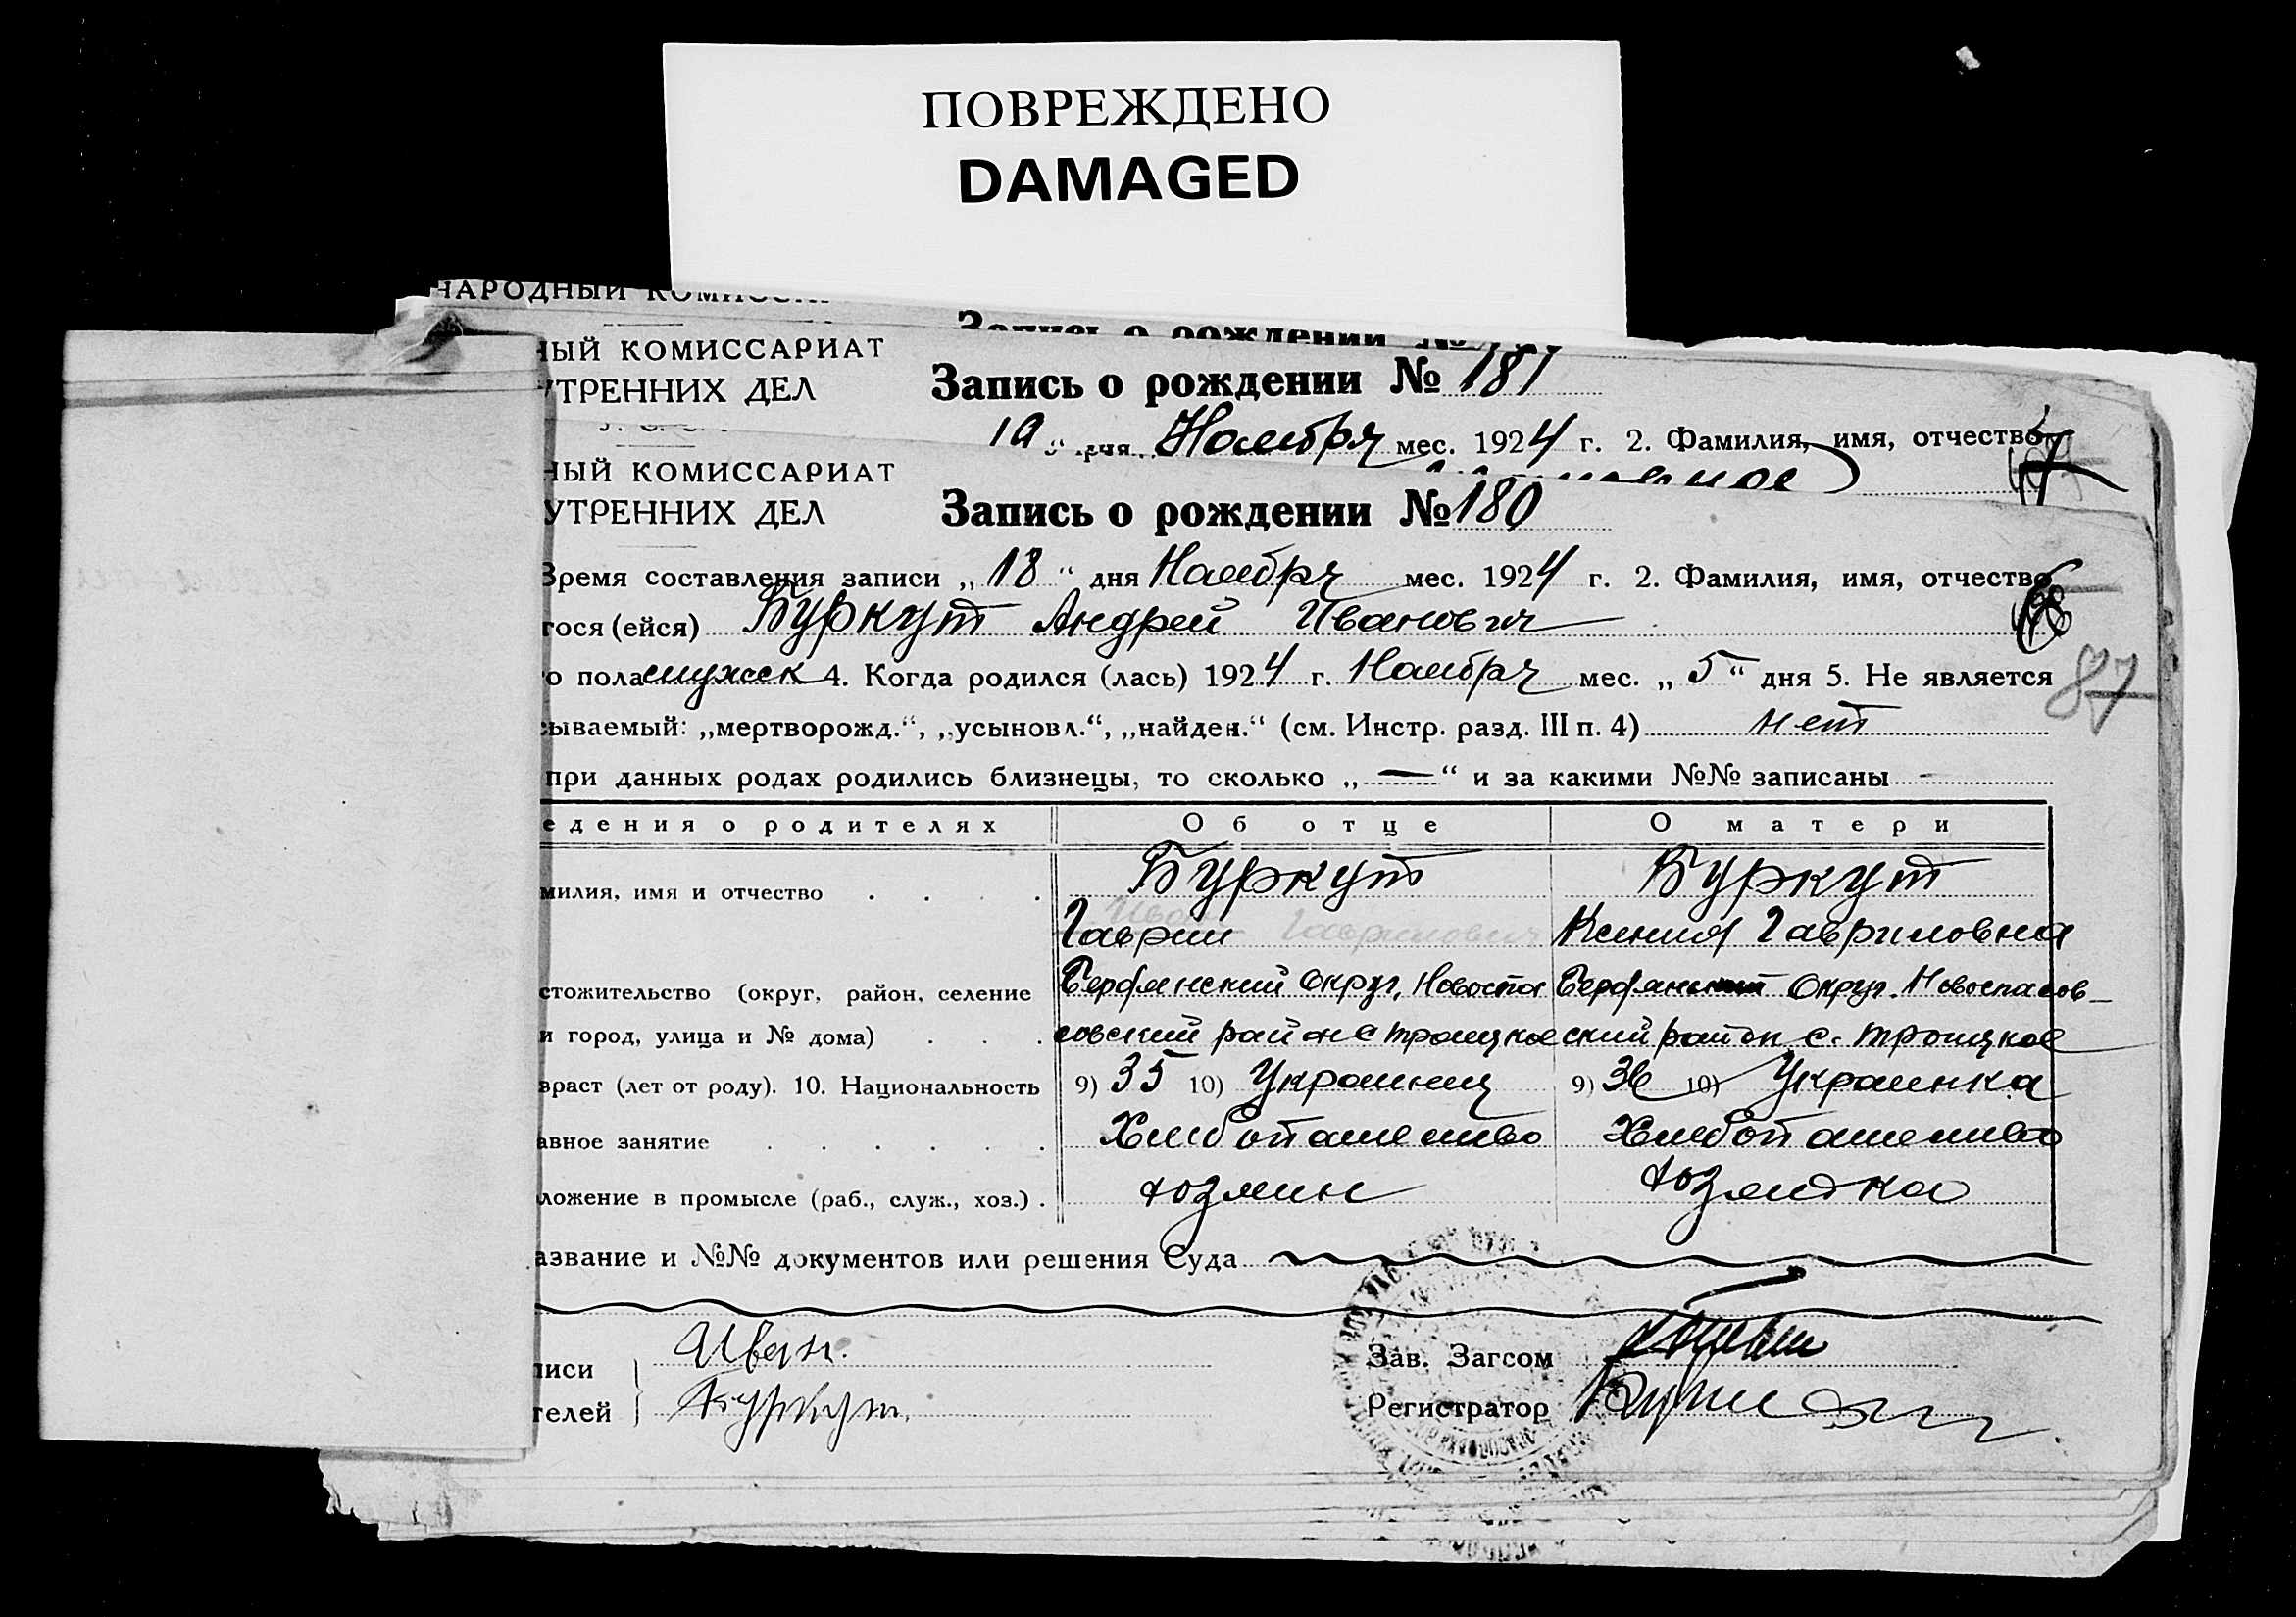 ПОВРЕЖДЕНО
DAMAGED
НАРОДНЫЙ
Запись о рождении №
НЫЙ КОМИССАРИАТ
УТРЕННИХ ДЕЛ
Запись о рождении № 181
19 " дня Ноября мес. 1924 г. 2. Фамилия, имя, отчество
НЫЙ КОМИССАРИАТ
УТРЕННИХ ДЕЛ
Запись о рождении № 180
Время составления записи „ 18 “ дня Ноября мес. 1924 г. 2. Фамилия, имя, отчество
гося (ейся) Буркут Андрей Иванович
о пола мужск 4. Когда родился (лась) 1924 г. Ноября мес. „ 5 “ дня 5. Не является
87
сываемый: „мертворожд.“, „усыновл.“, „найден.“ (см. Инстр. разд. III п. 4) нет
при данных родах родились близнецы, то сколько „ — “ и за какими №№ записаны -
едения о родителях Об отце О матери
милия, имя и отчество . . . . Буркут Буркут
Иван Гаврилович
Гаврии Ксения Гавриловна
стожительство (округ, район, селение Бердянский округ, Новоспа Бердянский Округ. Новоспасов-
и город, улица и № дома) . . . совский район с троицкое ский район с. троицкое
враст (лет от роду). 10. Национальность 9) 35 10) Украинец 9) 36 10) Украинка
авное занятие . . . . . . Хлебопашество Хлебопашество
ложение в промысле (раб., служ., хоз.) . хозяин хозяйка
азвание и №№ документов или решения Суда
писи Иван.
Зав. Загсом
телей Буркут.
Регистратор